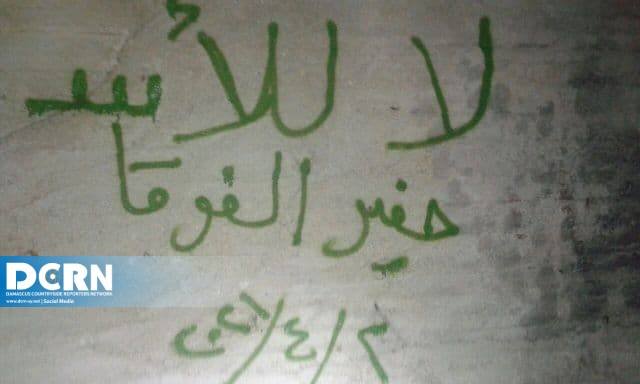 لا للأسد
حفير الفوقا
٢/٤/٢٠٢١
DCRN
DAMASCUS COUNTRYSIDE REPORTERS NETWORK
www.dcrn-sy.net | Social Media